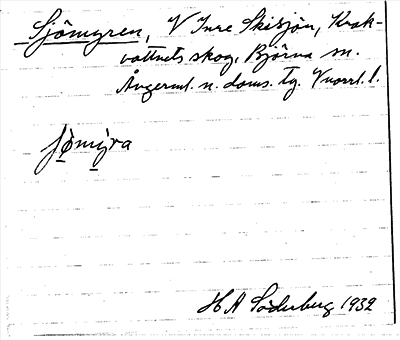 Sjömyren, V Inre Skisjön, Krak-
vattnets skog, Björna sn.
Ångerml. n. doms. tg. Vnorrl. l.
sjömýra
H A Söderberg 1932